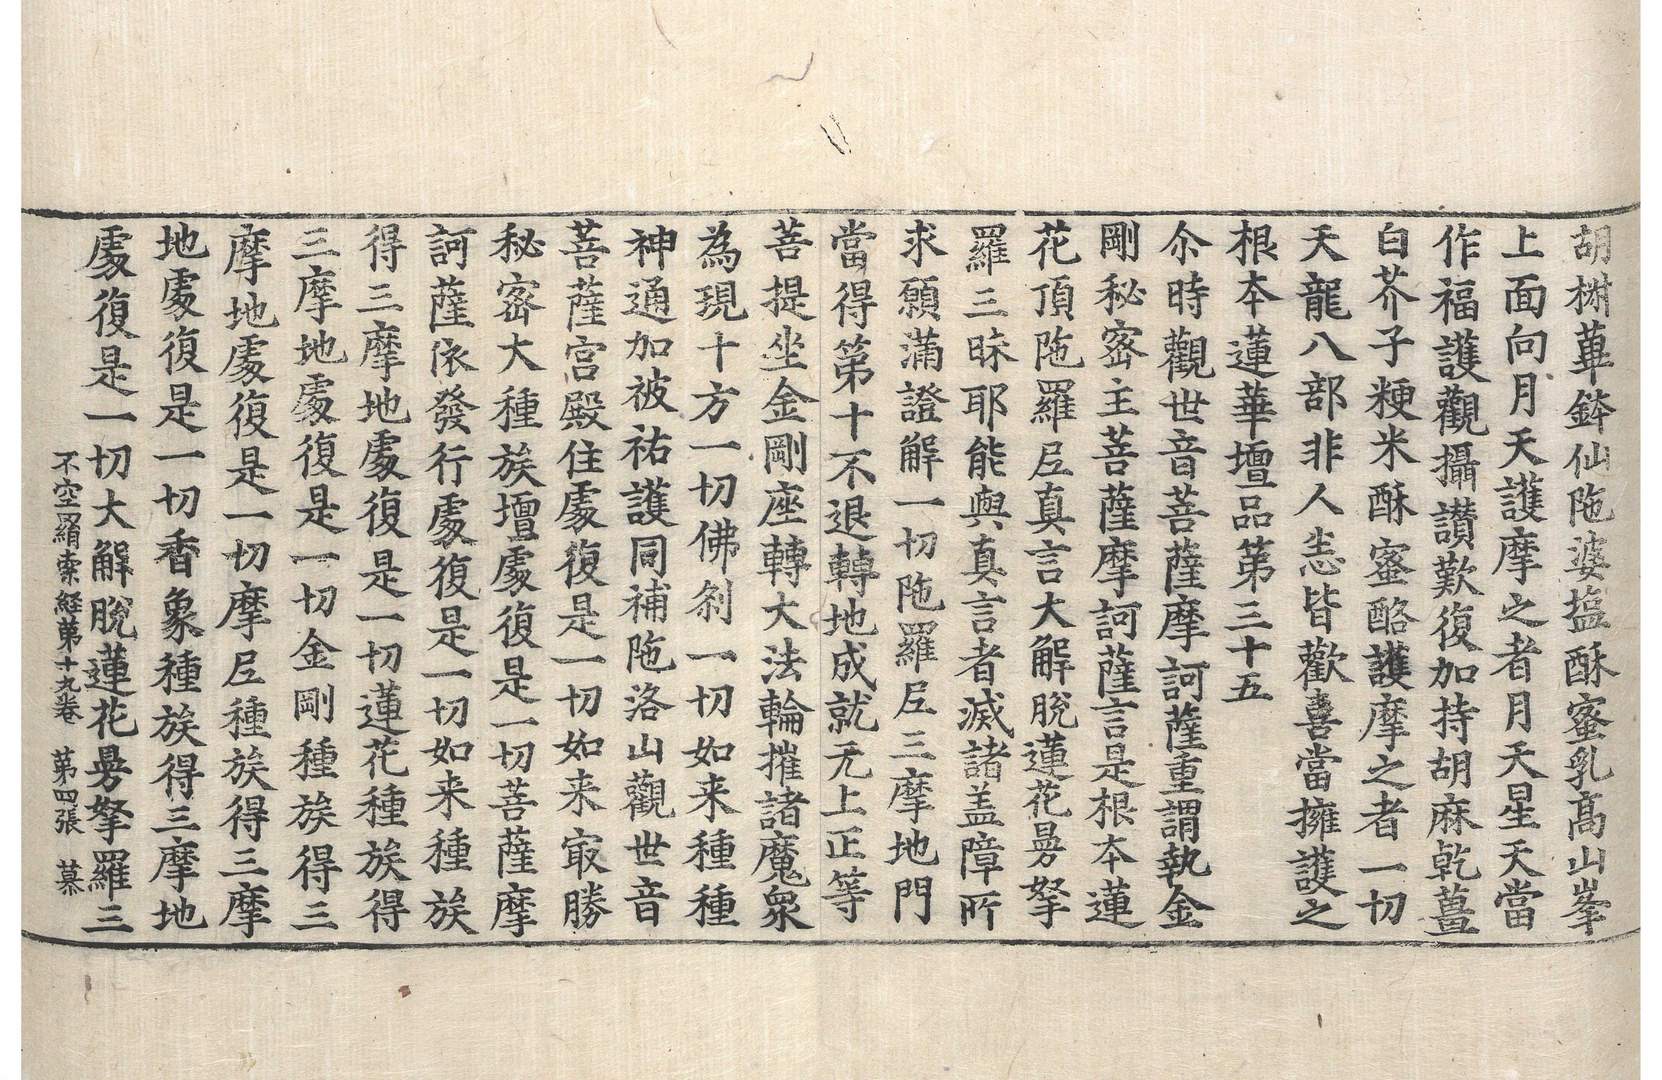 胡椒蓽鉢仙陁婆塩酥蜜乳高山峯
上面向月天護摩之者月天星天當
作福護觀攝讃歎復加持胡麻乾薑
白芥子粳米酥蜜酪護摩之者一切
天龍八部非人恙皆歡喜當擁護之
根夲蓮華壇品第三十五
尒時觀世音菩薩摩訶薩重謂執金
剛秘密主菩薩摩訶薩言是根夲蓮
花頂陁羅尼真言大解脫蓮花曼拏
羅三昧耶能與真言者滅諸盖障所
求願滿證解一切陁羅尼三摩地門
當得第十不退轉地成就无上正等
菩提坐金剛座轉大法輪摧諸魔衆
為現十方一切佛剎一切如来種種
神通加被祐護同補陁洛山觀世音
菩薩宮殿住處復是一切如来㝡勝
秘密大種族壇處復是一切菩薩摩
訶薩依發行處復是一切如来種族
得三摩地處復是一切蓮花種族得
三摩地處復是一切金剛種族得三
摩地處復是一切摩尼種族得三摩
地處復是一切香象種族得三摩地
處復是一切大解脫蓮花曼拏羅三
不空羂索経苐十九卷 第四張 慕